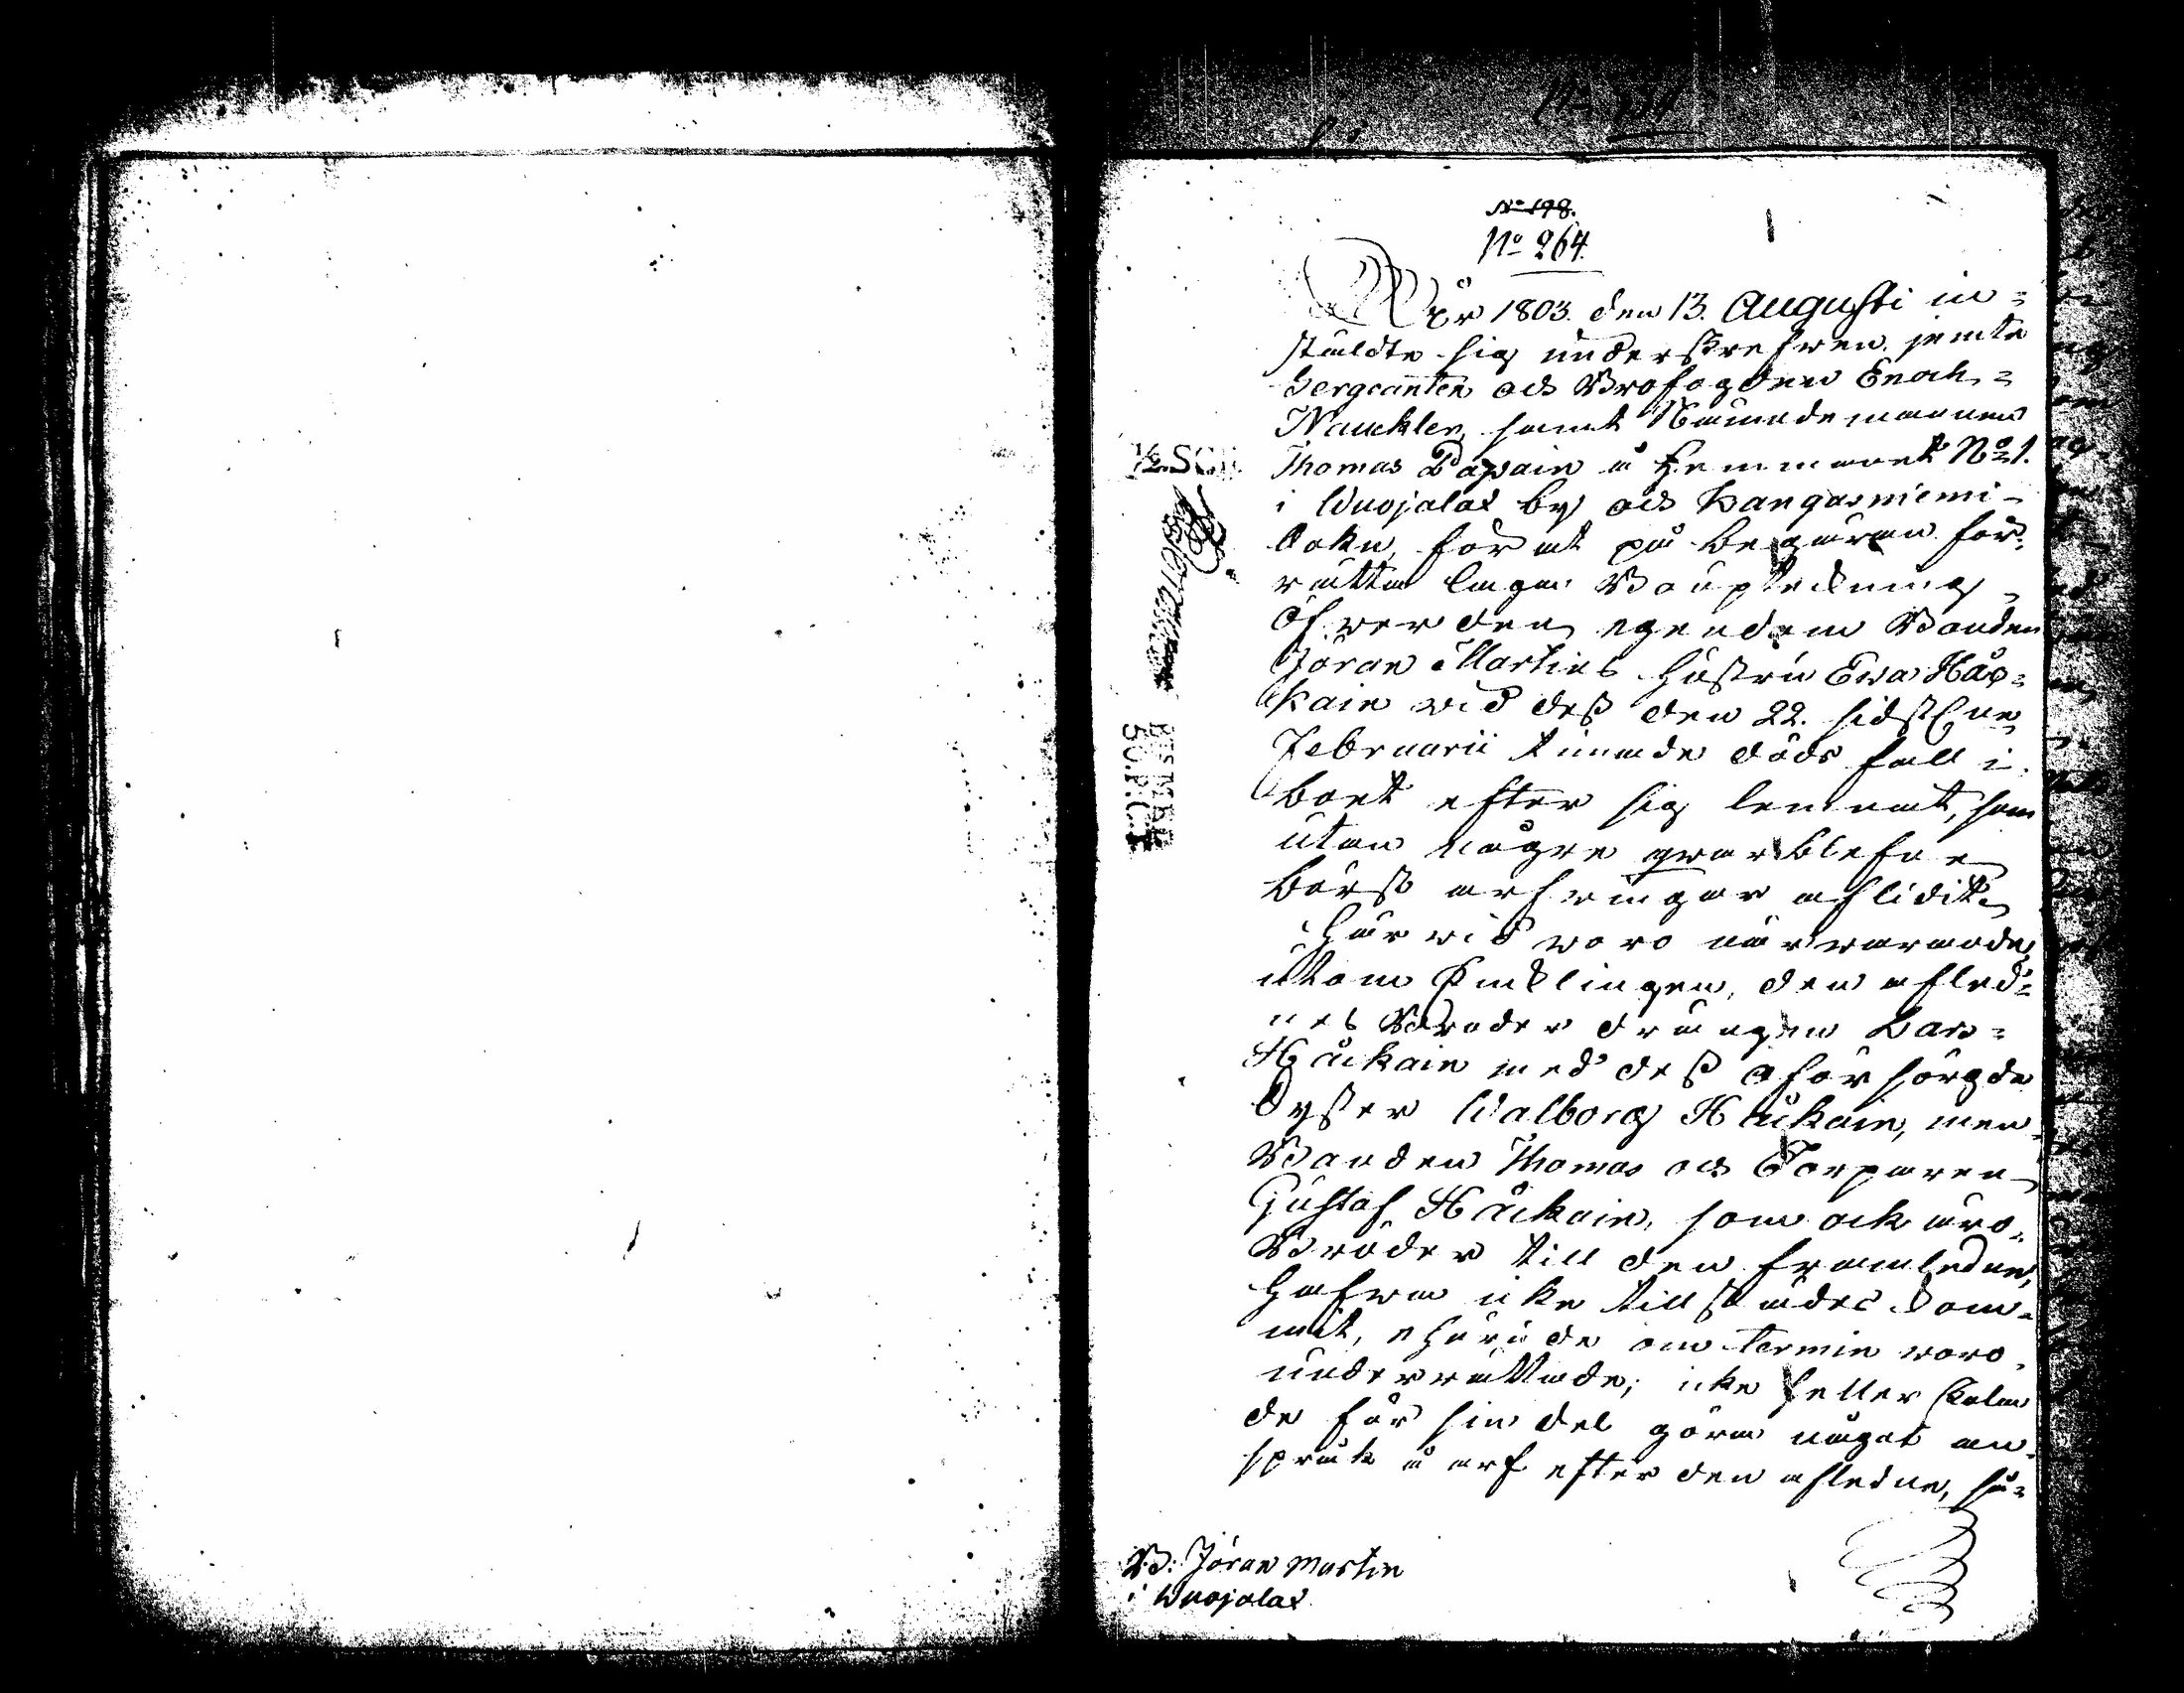 No 198.
No 264.
År 1803. den 13. Augusti in=
stäldte sig underskrefwen, jemte
Sergeanten och Brofogden Enoch=
Nauckler, samt Nämndemannen
Thomas Papain å Hemmanet No 1.
i Wuojalax by och Kangasniemi=
Sokn, för at på begäran för=
rätta laga Bouptekning
öfwer den egendom Bonden
Jöran Martins hustru Ewa Håc=
kain wid dess den 22. sidstl:ne
Februarii timade dödsfall i
boet efter sig lemnat, som
utan några qwarblefne
börst arfwingar aflidit.
Härwid woro närwarande
utom Enklingen, den afled=
nes Broder drängen Lars=
Håckain med dess oförsörgde
Syster Walborg Håckain, men
Bonden Thomas och Torparen
Gustaf Håckain, som ock äro
Bröder till den framledne,
hafwa icke tillstädes kom=
mit, ehuru de om termin woro
underrättade; icke heller skola
de för sin del göra något an=
språk å arf efter den afledne, så=
B: Jöran Martin
i Wuojalax
1/2.SCH.
50.P:CT